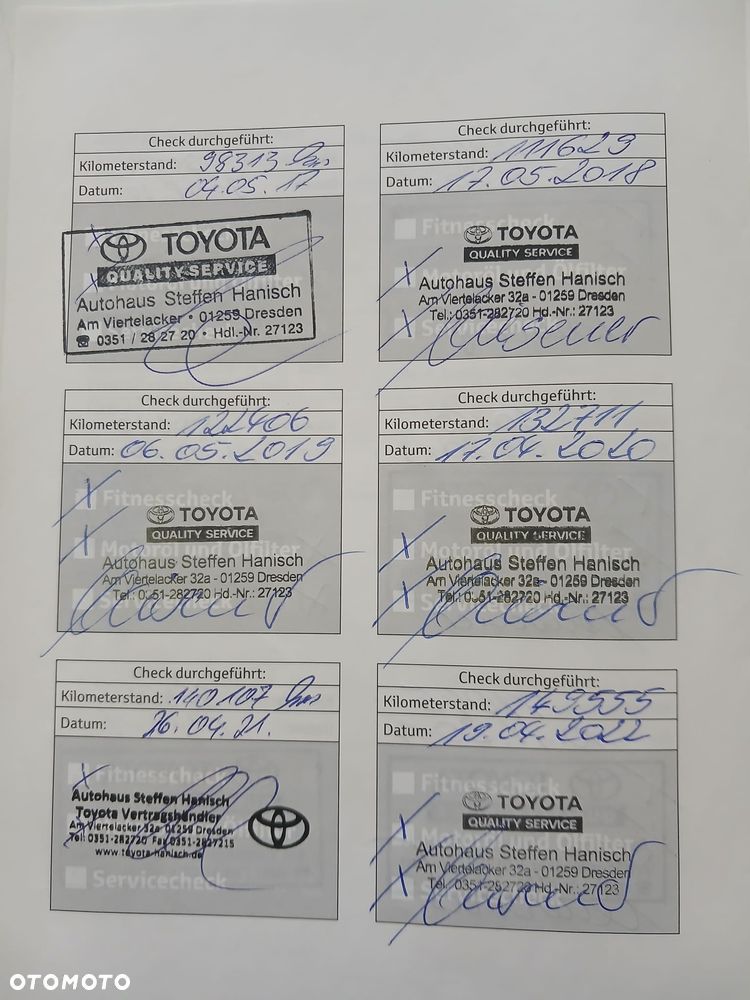 Check durchgeführt:
Kilometerstand: 98313 km
Datum: 04.05.17
TOYOTA
QUALITY SERVICE
Autohaus Steffen Hanisch
Am Viertelacker • 01259 Dresden
☎ 0351 / 28 27 20 • Hdl.-Nr. 27123
Check durchgeführt:
Kilometerstand: 111629
Datum: 17.05.2018
Fitnesscheck
TOYOTA
QUALITY SERVICE
Motoröl und Ölfilter
Autohaus Steffen Hanisch
Am Viertelacker 32a - 01259 Dresden
Tel.: 0351-282720 Hd.-Nr.: 27123
Servicecheck
Check durchgeführt:
Kilometerstand: 122406
Datum: 06.05.2019
X Fitnesscheck
TOYOTA
QUALITY SERVICE
X Motoröl und Ölfilter
Autohaus Steffen Hanisch
Am Viertelacker 32a - 01259 Dresden
Tel.: 0351-282720 Hd.-Nr.: 27123
Servicecheck
Check durchgeführt:
Kilometerstand: 132711
Datum: 17.04.2020
Fitnesscheck
TOYOTA
QUALITY SERVICE
X Motoröl und Ölfilter
Autohaus Steffen Hanisch
Am Viertelacker 32a - 01259 Dresden
Tel.: 0351-282720 Hd.-Nr.: 27123
X Servicecheck
Check durchgeführt:
Kilometerstand: 140107 km
Datum: 26.04.21.
X Fitnesscheck
Autohaus Steffen Hanisch
Toyota Vertragshändler
Am Viertelacker 32a 01259 Dresden
Tel: 0351-282720 Fax 0351-2827215
www.toyota-hanisch.de
Servicecheck
Check durchgeführt:
Kilometerstand: 149555
Datum: 19.04.2022
Fitnesscheck
TOYOTA
QUALITY SERVICE
X Motoröl und Ölfilter
Autohaus Steffen Hanisch
Am Viertelacker 32a - 01259 Dresden
Tel.: 0351-282720 Hd.-Nr.: 27123
X Servicecheck
OTOMOTO